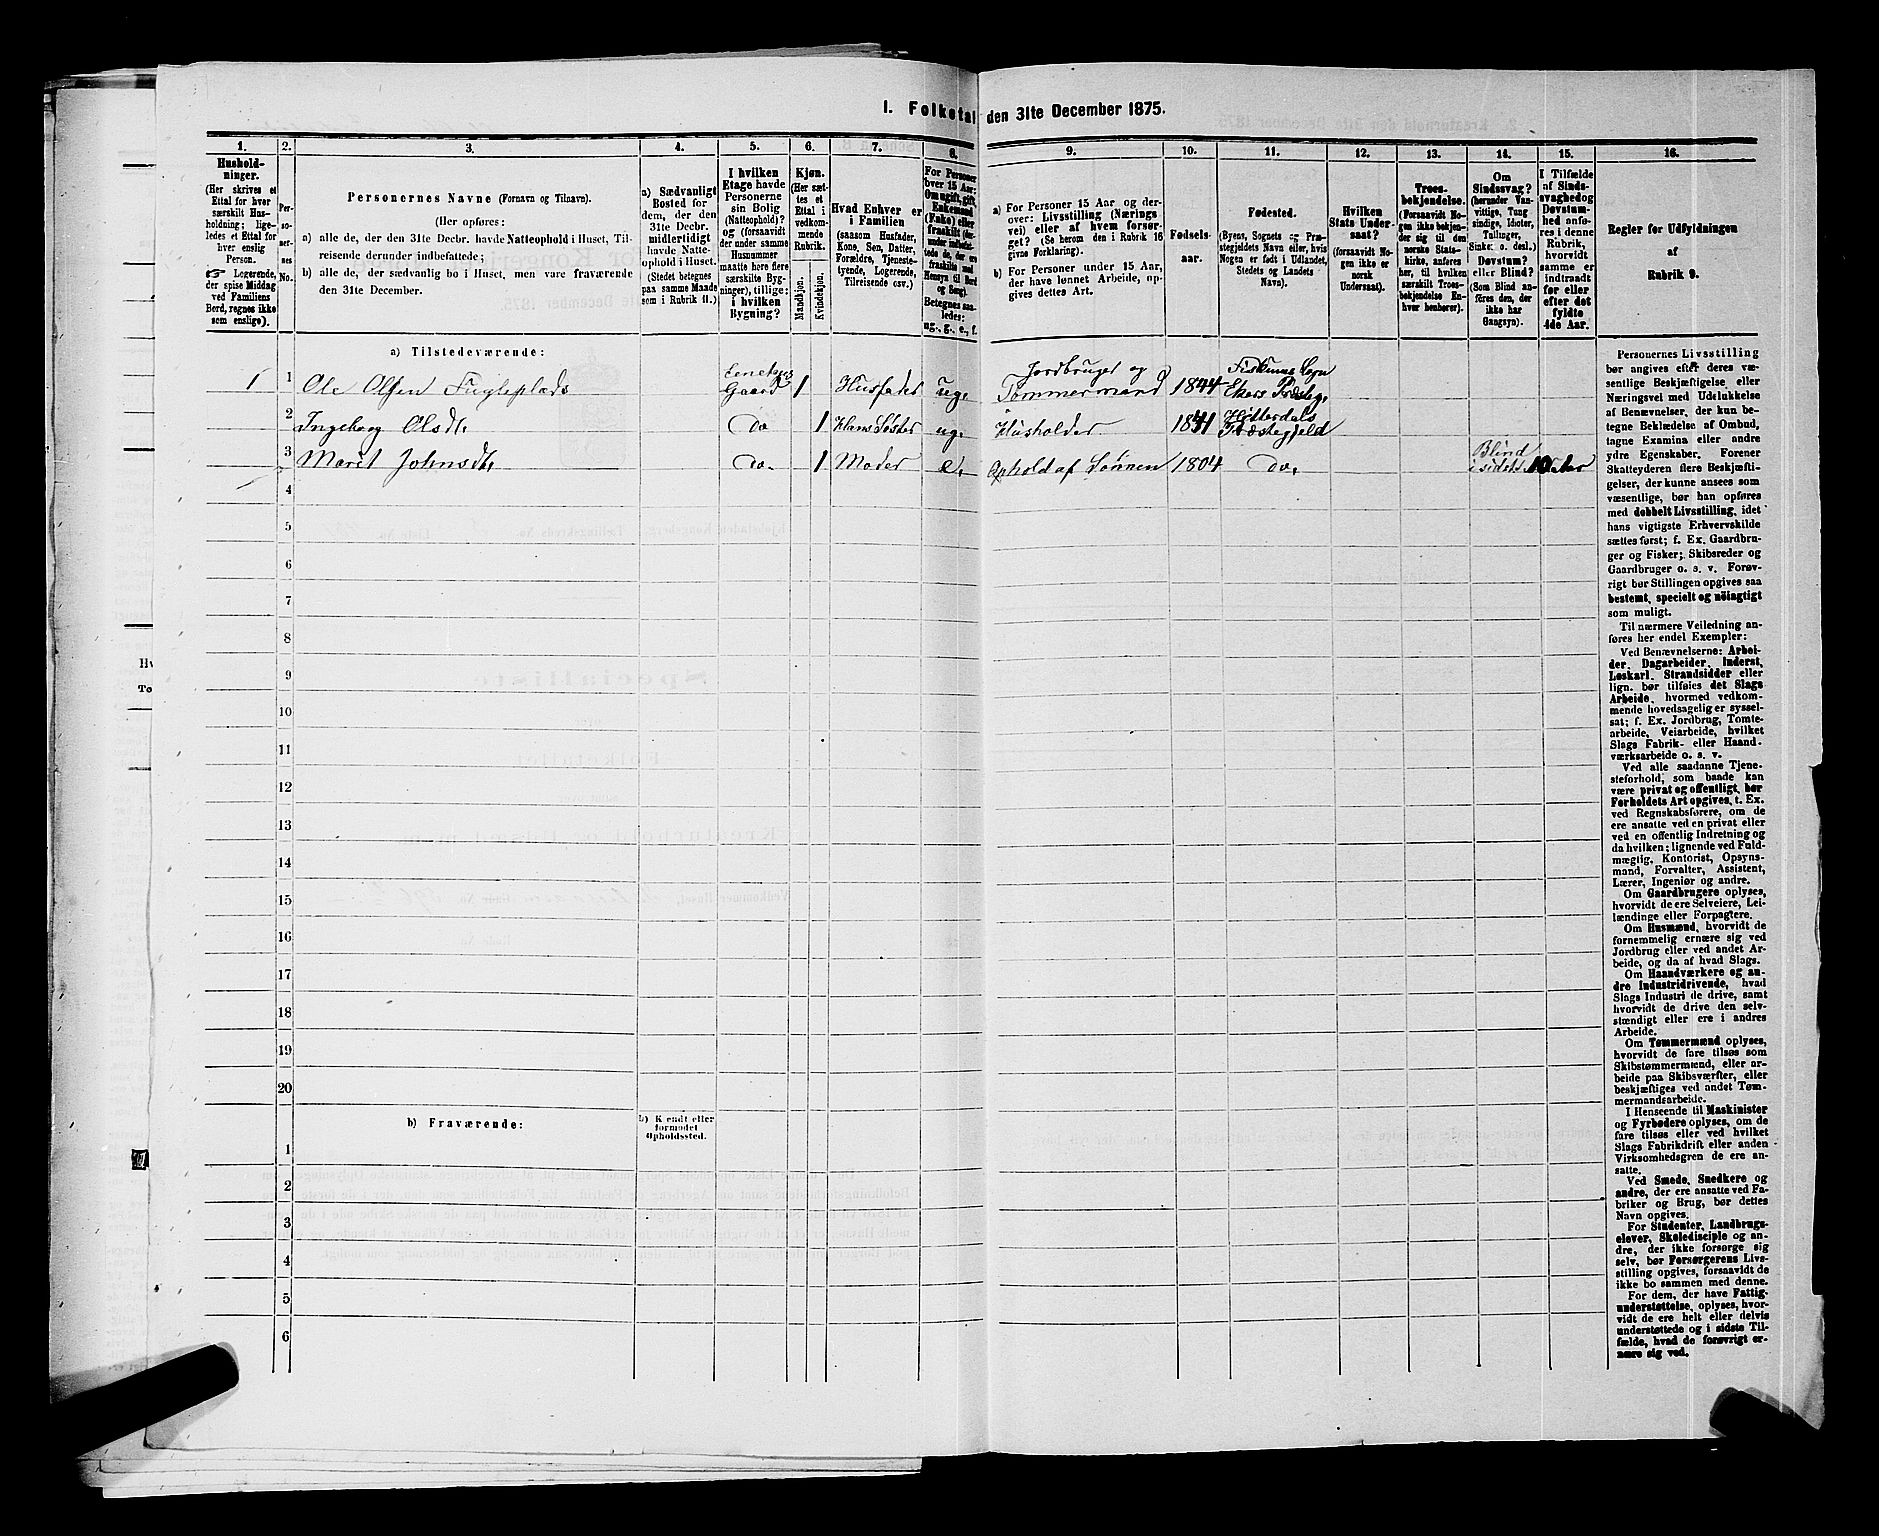 I. Folketal den 31te December 1875.
1. 2. 3. 4. 5. 6. 7. 8. 9. 10. 11. 12. 13. 14. 15. 16.
Hushold-
ninger.
(Her skrives et
Ettal for hver
særskilt Hus-
holdning; lige-
ledes et Ettal for
hver enslig
Person.
☞ Logerende,
der spise Middag
ved Familiens
Bord, regnes ikke
som enslige).
Per-
so-
ner-
nes
No.
Personernes Navne (Fornavn og Tilnavn).
(Her opføres:
a) alle de, der den 31te Decbr. havde Natteophold i Huset, Til-
reisende derunder indbefattede;
b) alle de, der sædvanlig bo i Huset, men vare fraværende
den 31te December.
a) Sædvanligt
Bosted for
dem, der den
31te Decbr.
midlertidigt
havde Natte-
ophold i Huset.
(Stedet betegnes
paa samme Maade
som i Rubrik 11.)
I hvilken
Etage havde
Personerne
sin Bolig
(Natteophold)?
og (forsaavidt
der under samme
Husnummer
maatte høre flere
særskilte Byg-
ninger), tillige:
i hvilken
Bygning?
Kjøn.
(Her sæt-
tes et
Ettal i
vedkom-
mende
Rubrik.
Mandkjøn.
Kvindekjøn.
Hvad Enhver er
i Familien
(saasom Husfader,
Kone, Søn, Datter,
Forældre, Tjeneste-
tyende, Logerende,
Tilreisende osv.)
For Personer
over 15 Aar:
Om ugift, gift,
Enkemand
(Enke) eller
fraskilt
Betegnes saa-
ledes:
ug., g., e., f.
a) For Personer 15 Aar og der-
over: Livsstilling (Nærings
vei) eller af hvem forsør-
get? (Se herom den i Rubrik 16
givne Forklaring).
b) For Personer under 15 Aar,
der have lønnet Arbeide, op-
gives dettes Art.
Fødsels-
aar.
Fødested.
(Byens, Sognets og Præ-
stegjeldets Navn eller, hvis
Nogen er født i Udlandet,
Stedets og Landets
Navn).
Hvilken
Stats Under-
saat?
(forsaavidt No-
gen ikke er
norsk
Undersaat).
Troes-
bekjendelse.
(Forsaavidt No-
gen ikke bekjen-
der sig til den
norske Stats-
kirke, anføres
her, til hvilken
særskilt Troes-
bekjendelse En-
hver henhører).
Om
Sindssvag?
(herunder Van-
vittige, Tung
sindige, Idioter,
Tullinger,
Sinker o. desl.)
Døvstum?
eller Blind?
(Som Blind an-
føres den, der
ikke har
Gangsyn).
I Tilfælde
af Sinds-
svaghed og
Døvstum-
hed anfø-
res i denne
Rubrik,
hvorvidt
samme er
indtraadt
før eller
efter det
fyldte
4de Aar.
Regler for Udfyldningen
af
Rubrik 9.
a) Tilstedeværende:
1 1 Ole Olsen Fugleplads Gaard 1 Husfader ug. Jordbruget og Tømmermand 1844 Fiskums Sogn Ekers Præsteg.
2 Ingeborg Olsdt. Do 1 Hans Søster ug. Husholder 1841 Hitterdals Præstegjeld
3 Maret Johnsdt. Do. 1 Moder e. Ophold af Sønnen 1804 Do. Blind i sidste 10 Aar
4
5
6
7
8
9
10
11
12
13
14
15
16
17
18
19
20
b) Fraværende:
b) Kjendt eller
formodet
Opholdssted.
1
2
3
4
5
6
Personernes Livsstilling
bør angives efter deres væ-
sentlige Beskjæftigelse eller
Næringsvei med Udelukkelse
af Benævnelser, der kun be-
tegne Beklædelse af Ombud,
tagne Examina eller andre
ydre Egenskaber. Forener
Skatteyderen flere Beskjæfti-
gelser, der kunne ansees som
væsentlige, bør han opføres
med dobbelt Livsstilling, idet
hans vigtigste Erhvervskilde
sættes først; f. Ex. Gaardbru-
ger og Fisker; Skibsreder og
Gaardbruger o. s. v. Forøv-
rigt bør Stillingen opgives saa
bestemt, specielt og nøiagtigt
som muligt.
Til nærmere Veiledning an-
føres her endel Exempler:
Ved Benævnelserne: Arbei-
der, Dagarbeider, Inderst,
Løskarl, Strandsidder eller
lign. bør tilføies det Slags
Arbeide, hvormed vedkom-
mende hovedsagelig er syssel-
sat; f. Ex. Jordbrug, Tomte-
arbeide, Veiarbeide, hvilket
Slags Fabrik- eller Haand-
værksarbeide o. s. v.
Ved alle saadanne Tjene-
steforhold, som baade kan
være privat og offentligt, bør
Forholdets Art opgives, t. Ex.
ved Regnskabsførere, om de
ere ansatte ved en privat eller
ved en offentlig Indretning og
da hvilken; lignende ved Fuld-
mægtig, Kontorist, Opsyns-
mand, Forvalter, Assistent,
Lærer, Ingeniør og andre.
Om Gaardbrugere oplyses,
hvorvidt de ere Selveiere, Lei-
lændinge eller Forpagtere.
Om Husmænd, hvorvidt de
fornemmelig ernære sig ved
Jordbrug eller ved andet Ar-
beide, og da af hvad Slags.
Om Haandværkere og an-
dre Industridrivende, hvad
Slags Industri de drive, samt
hvorvidt de drive den selv-
stændigt eller ere i andres
Arbeide.
Om Tømmermænd oplyses,
hvorvidt de fare tilsøs som
Skibstømmermænd, eller ar-
beide paa Skibsværfter, eller
beskjæftiges ved andet Tøm-
mermandsarbeide.
I Henseende til Maskinister
og Fyrbødere oplyses, om de
fare tilsøs eller ved hvilket
Slags Fabrikdrift eller anden
Virksomhedsgren de ere an-
satte.
Ved Smede, Snedkere og
andre, der ere ansatte ved Fa-
briker og Brug, bør dettes
Navn opgives.
For Studenter, Landbrugs-
elever, Skoledisciple og an-
dre, der ikke forsørge sig
selv, bør Forsørgerens Livs-
stilling opgives, forsaavidt de
ikke bo sammen med denne.
For dem, der have Fattig-
understøttelse, oplyses, hvor-
vidt de ere helt eller delvis
understøttede og i sidste Til-
fælde, hvad de forøvrigt er-
nære sig ved.